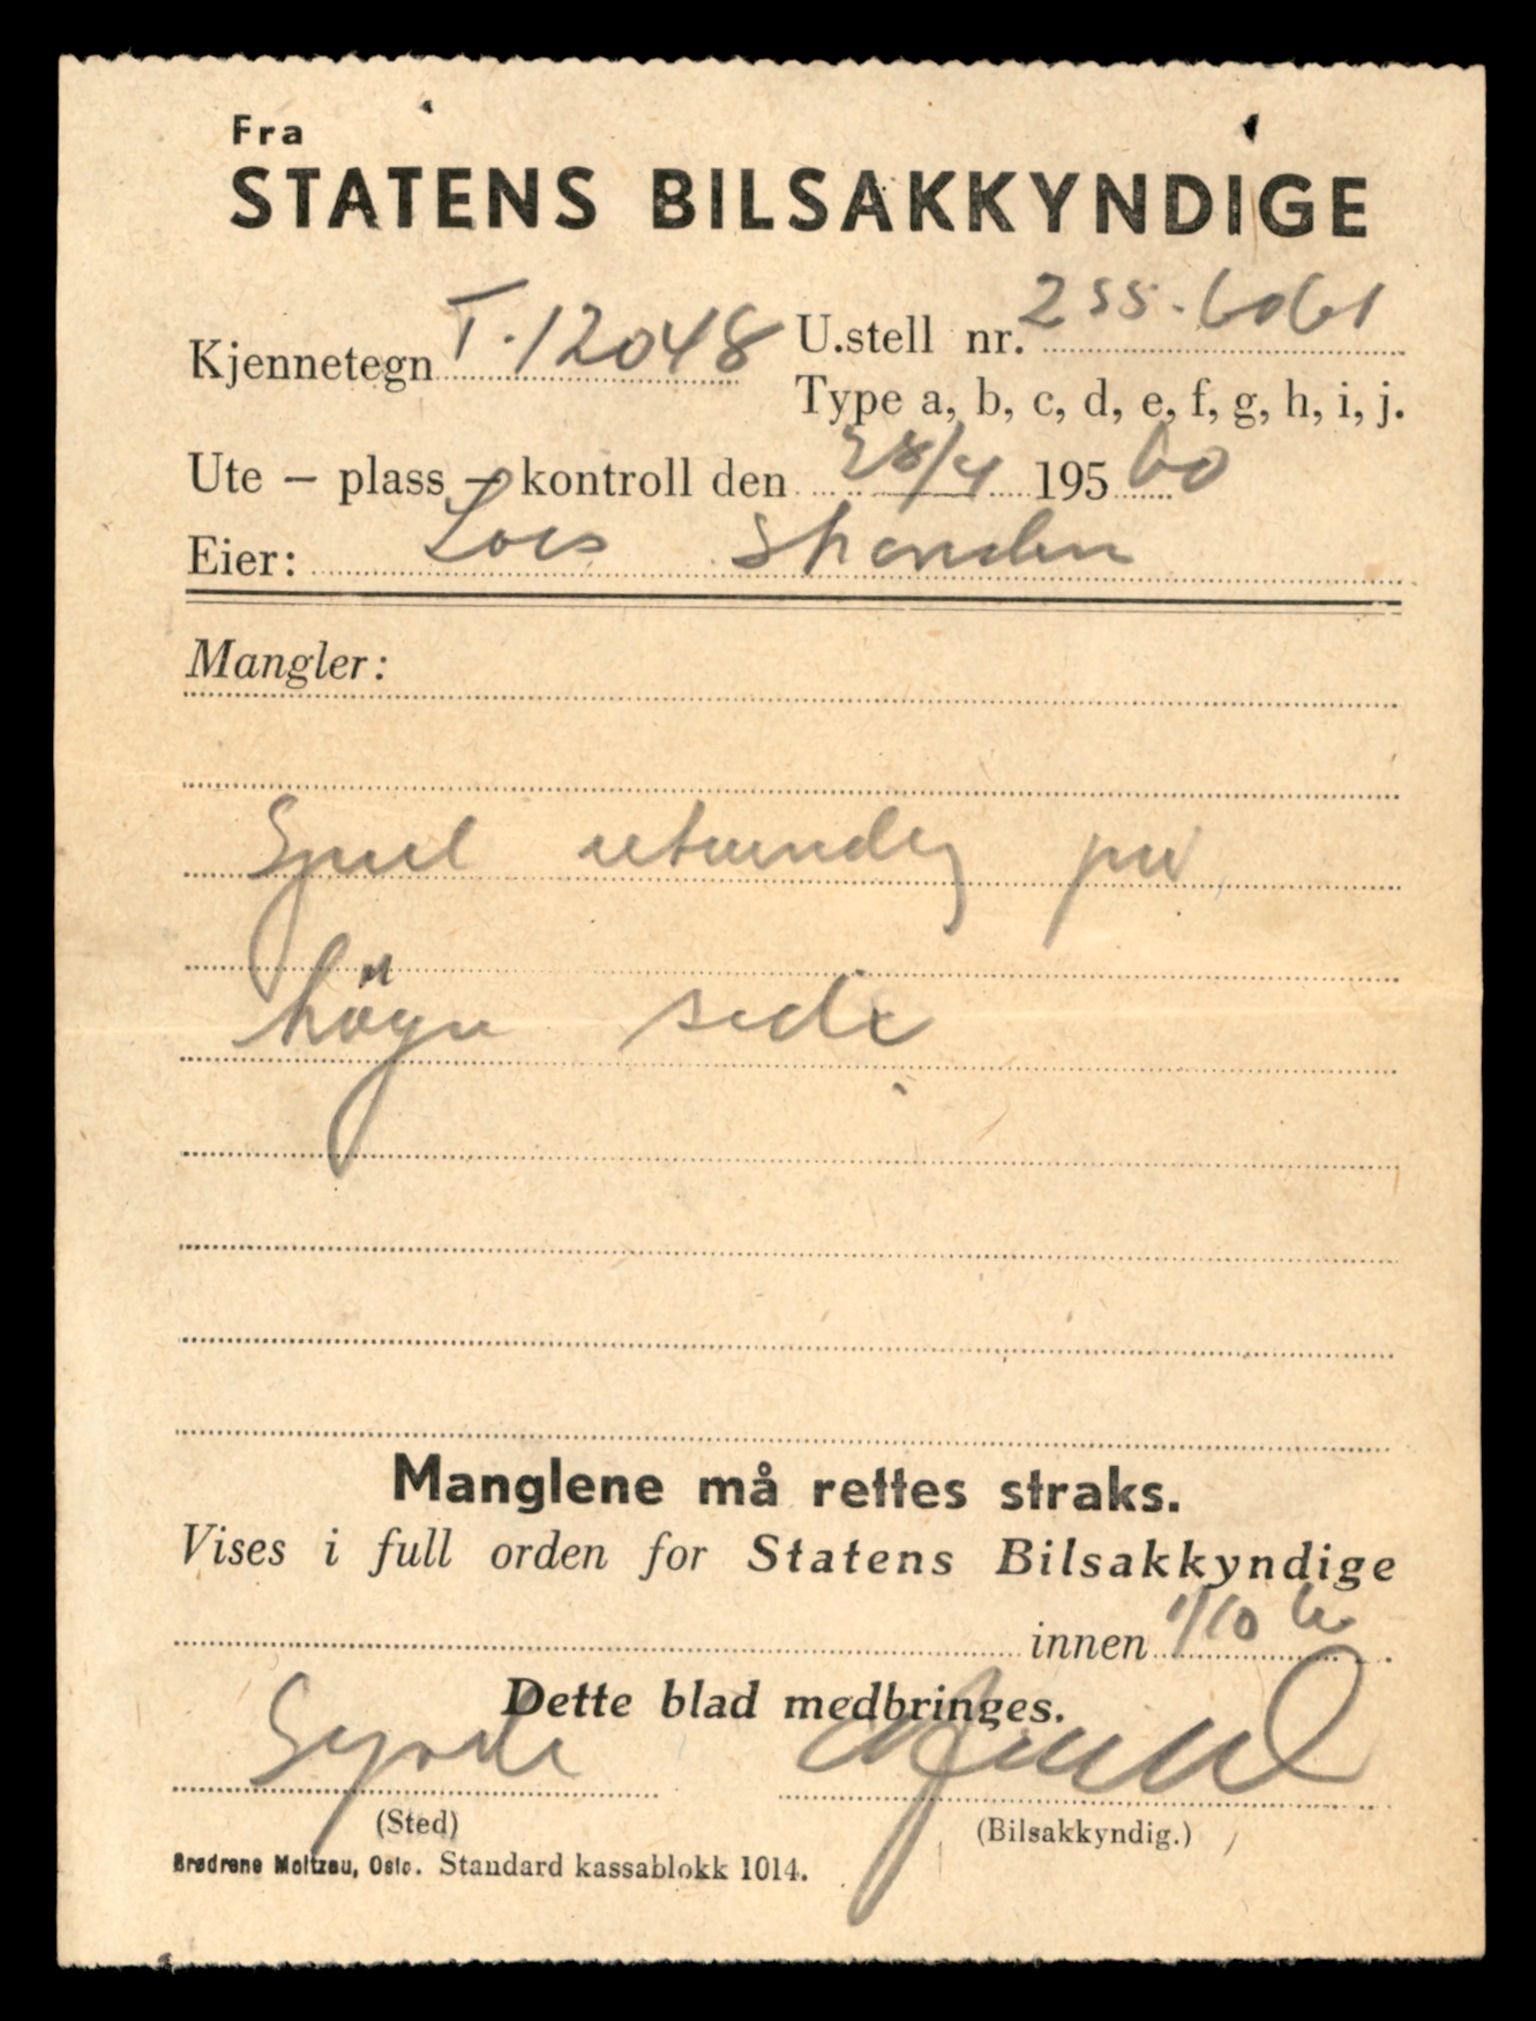 Fra
STATENS BILSAKKYNDIGE
Kjennetegn T.12048 U.stell nr. 255-6061
Type a, b, c, d, e, f, g, h, i, j.
Ute – plass – kontroll den 28/4 195 60
Eier: Lars
Mangler:
høyre side
Manglene må rettes straks.
Vises i full orden for Statens Bilsakkyndige
innen 1/10 60
Dette blad medbringes.
(Sted) (Bilsakkyndig.)
Brødrene Moltzau, Oslo. Standard kassablokk 1014.